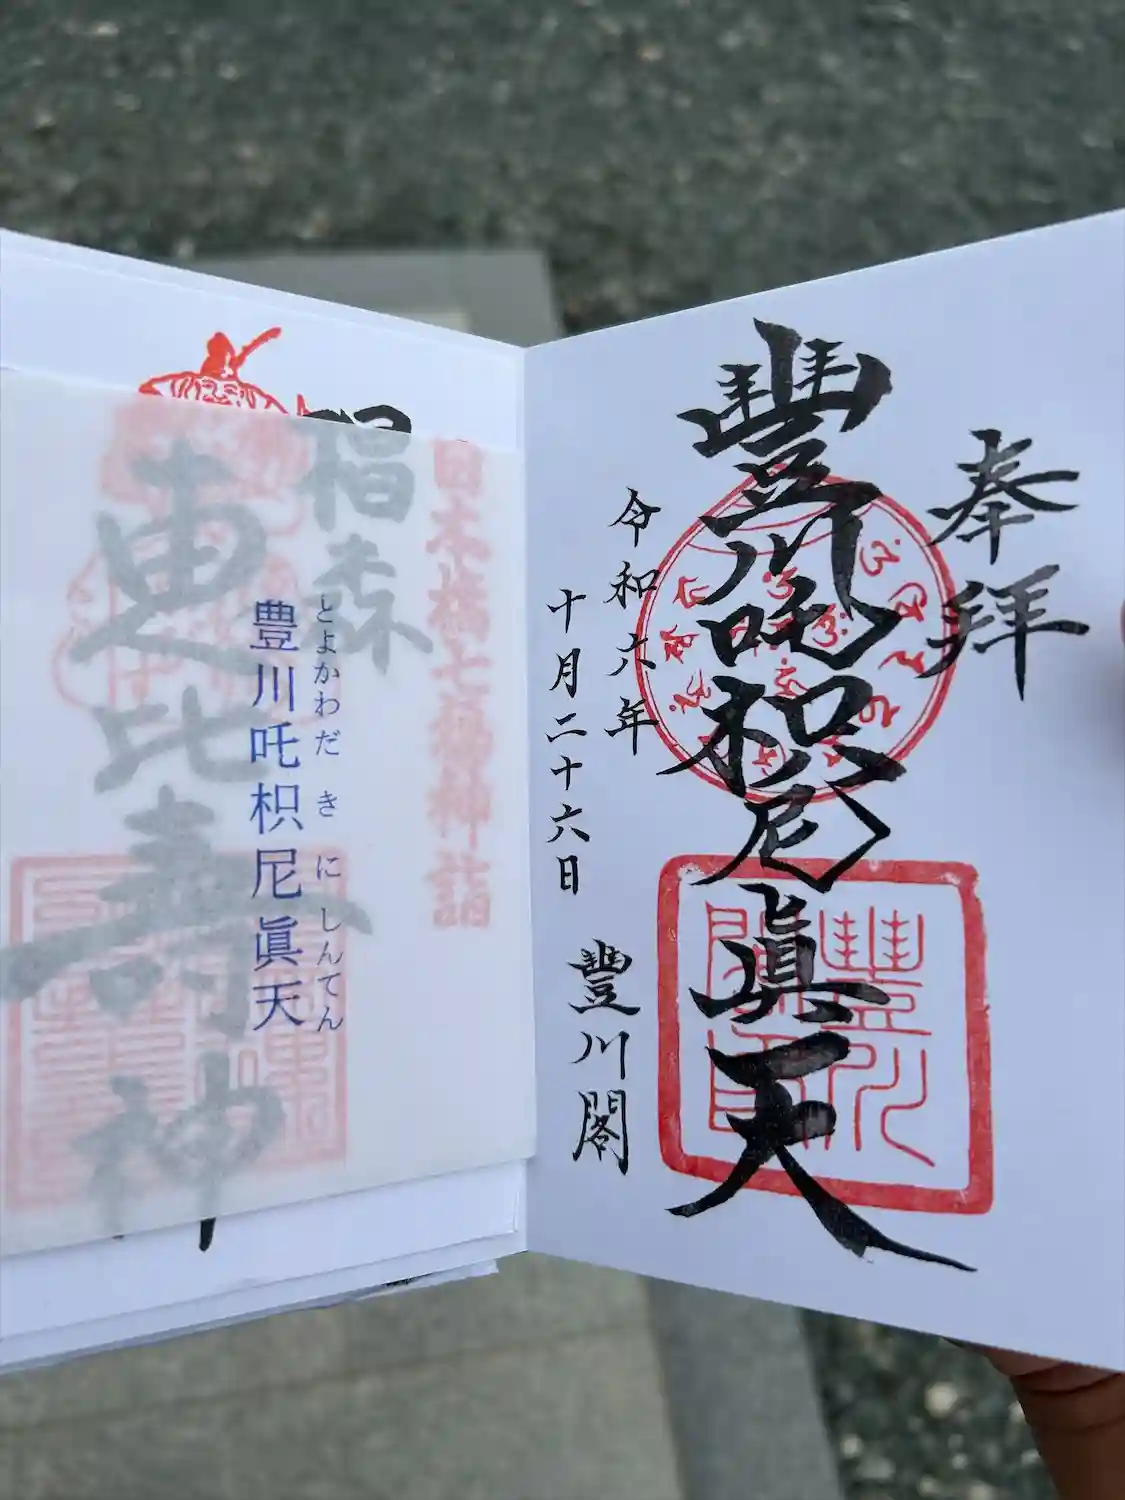 奉拝
豐川吒枳尼眞天
令和六年
十月二十六日
豐川閣
日本橋七福神詣
椙森
恵比寿神
とよかわだきにしんてん
豊川吒枳尼眞天